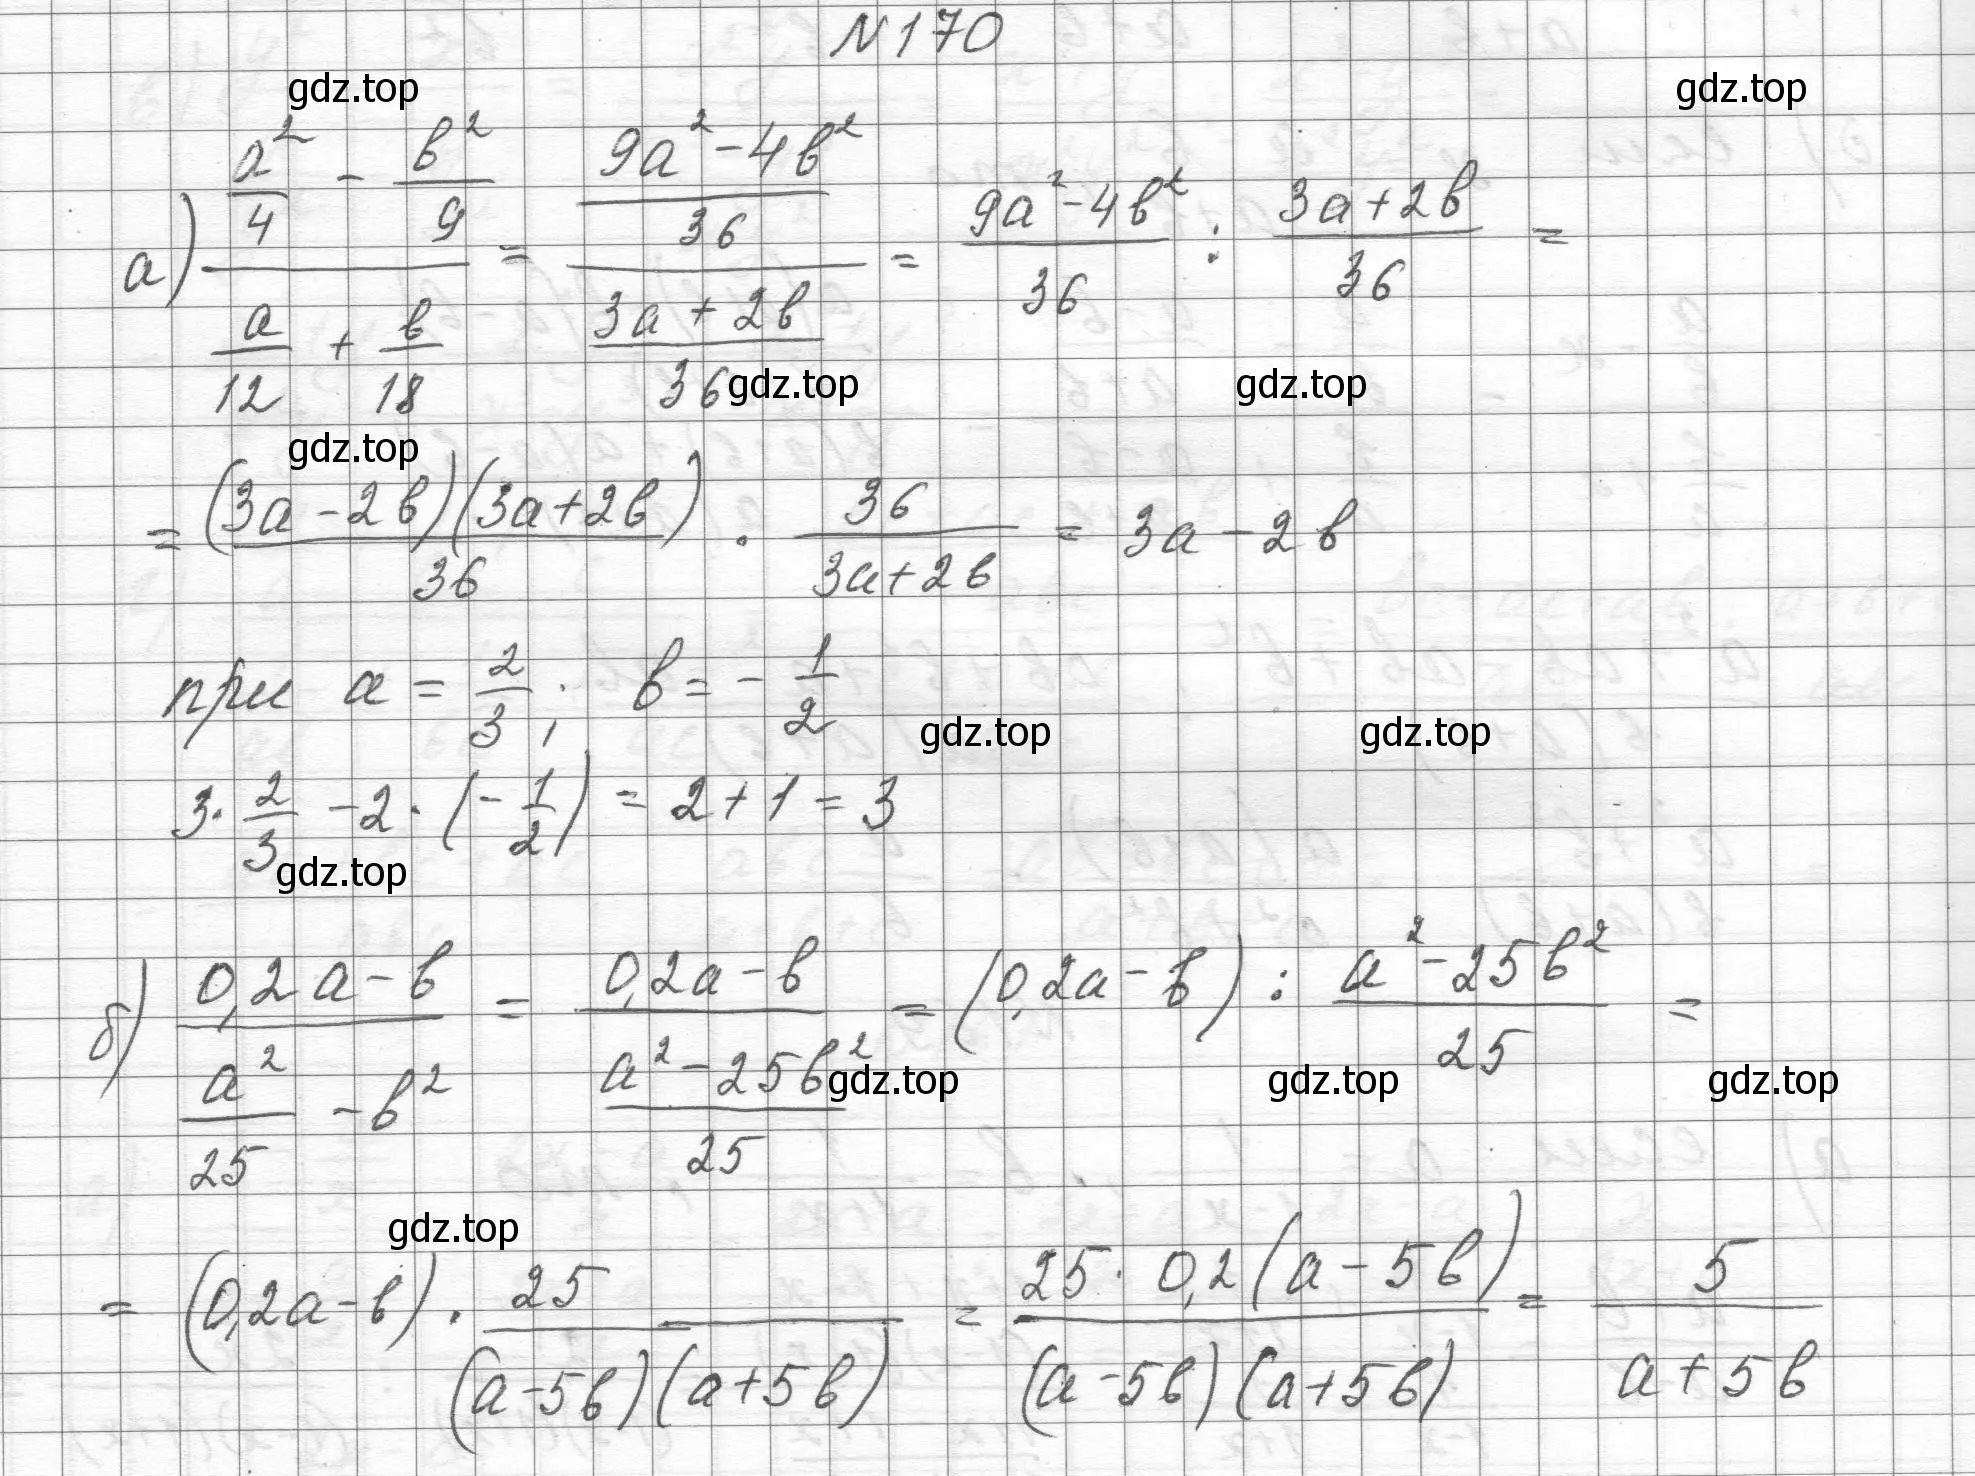 N170
gdz.top gdz.top
а) (a²/4 - b²/9)/(a/12 + b/18) = ((9a² - 4b²)/36)/((3a + 2b)/36) = (9a² - 4b²)/36 : (3a + 2b)/36 =
gdz.top gdz.top
gdz.top
= (3a - 2b)(3a + 2b)/36 · 36/(3a + 2b) = 3a - 2b
при a = 2/3; b = - 1/2
gdz.top gdz.top
3 · 2/3 - 2 · (- 1/2) = 2 + 1 = 3
gdz.top
б) (0,2a - b)/(a²/25 - b²) = (0,2a - b)/((a² - 25b²)/25) = (0,2a - b) : (a² - 25b²)/25 =
gdz.top gdz.top gdz.top
gdz.top
= (0,2a - b) · 25/((a - 5b)(a + 5b)) = 25 · 0,2(a - 5b)/((a - 5b)(a + 5b)) = 5/(a + 5b)